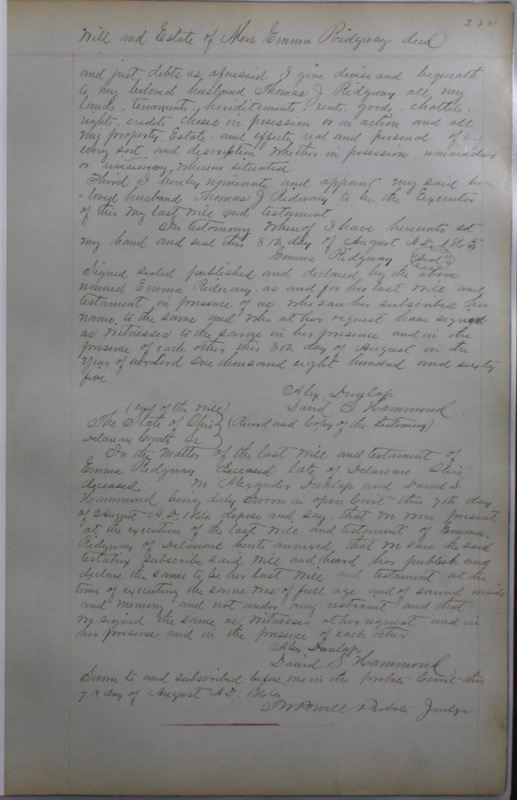 235
Will and Estate of Mrs Emma Ridgway decd
and just debts as aforesaid I give devise and bequeath
to my beloved husband Thomas J Ridgway all my
lands, tenements, hereditements, rents, goods, chattles,
rights, credits choses in possession or in action and all
my property, Estate, and effects, real and personal of
every sort and description whether in posession, remainder
or reversionary wherever situated
Third I hereby nominate and appoint my said be-
=loved husband Thomas J Ridgway to be the Executor
of this my last will and testament
In testimony whereof I have hereunto set
my hand and seal this 8th day of August A.D. 1865
Emma Ridgway (Seal)
Signed sealed, published and declared by the above
named Emma Ridgway, as and for her last will and
testament in presence of us who saw her subscribe her
name to the same and who at her request have signed
as witnesses to the same in her presence and in the
presence of each other this 8th day of August in the
year of our Lord One thousand eight hundred and sixty
five
Alex. Dunlap
David S Hammond.
(copy of the will)
The State of Ohio (Record and Copy of the testimony)
Delaware County SS
In the Matter of the last will and testament of
Emma Ridgway deceased late of Delaware Ohio
deceased. We Alexander Dunlap and David S.
Hammond being duly sworn in open Court this 7th day
of August A.D. 1866 depose and say, that we were present
at the execution of the last will and testament of Emma
Ridgway of Delaware hereto annexed, that we saw the said
testatrix subscribe said will and heard her publish and
declare the same to be her last will and testament at the
time of executing the same was of full age and of sound mind
and memory and not under any restraint and that
we signed the same as witnesses at her request and in
her presence and in the presence of each other
Alex Dunlap
David S. Hammond
Sworn to and subscribed before me in the probate Court this
7th day of August A.D. 1866
Probate Judge